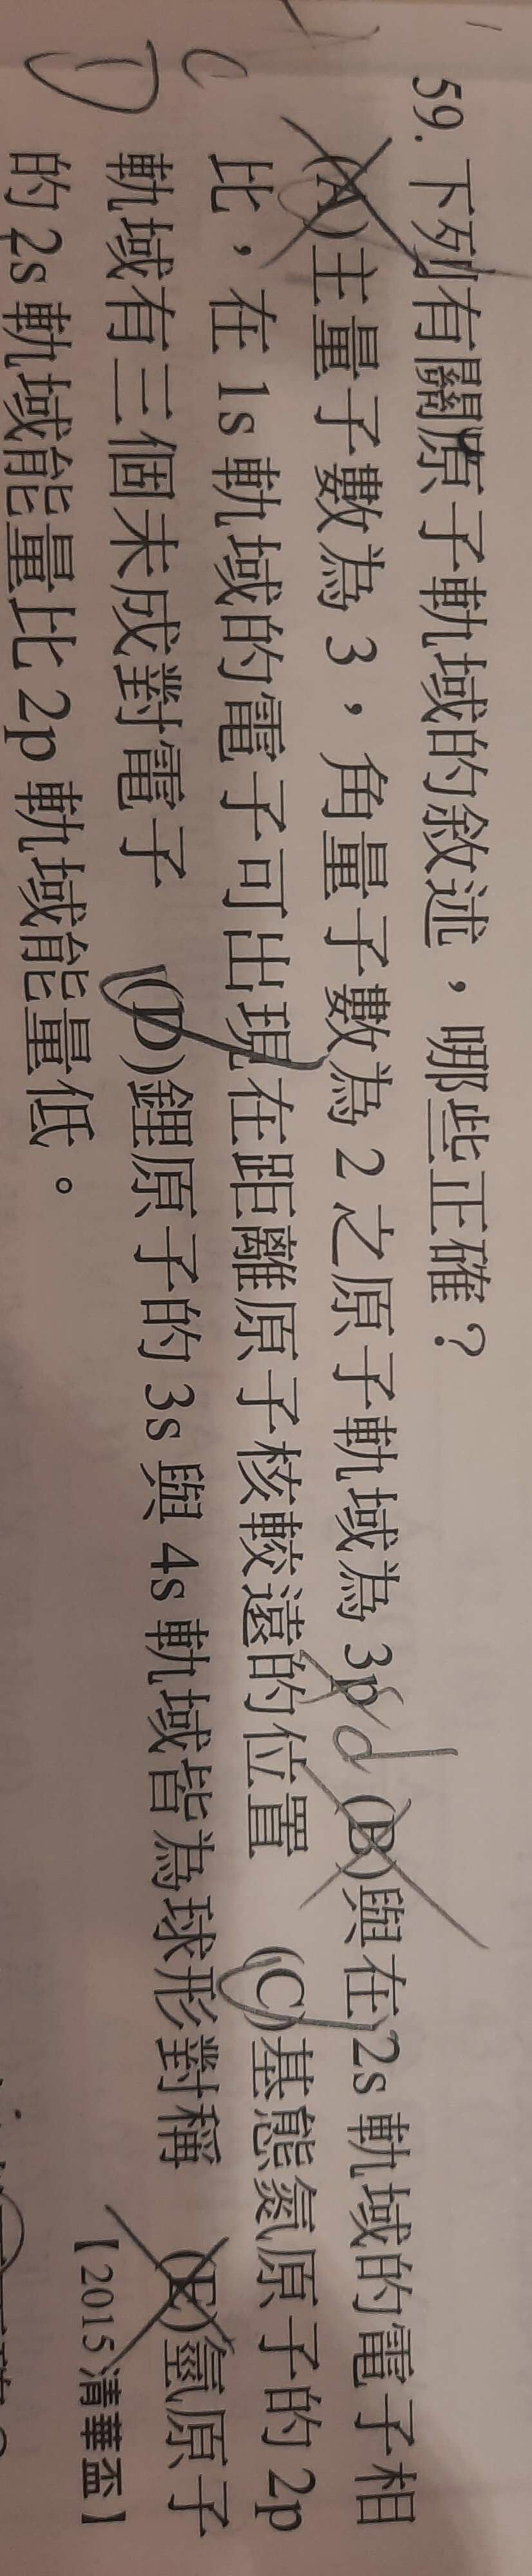 59. 下列有關原子軌域的敘述，哪些正確？
(A)主量子數為 3，角量子數為 2 之原子軌域為 3p d (B)與在 2s 軌域的電子相
C 比，在 1s 軌域的電子可出現在距離原子核較遠的位置 (C)基態氮原子的 2p
D 軌域有三個未成對電子 (D)鋰原子的 3s 與 4s 軌域皆為球形對稱 (E)氫原子
的 2s 軌域能量比 2p 軌域能量低。
【2015 清華盃】